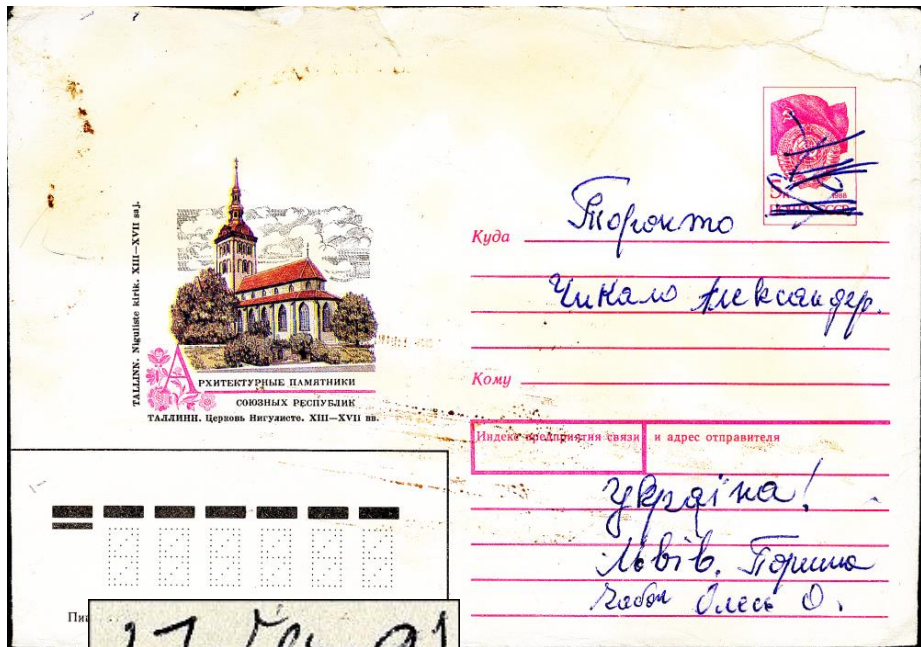 TALLINN. Niguliste kirik. XIII—XVII saj.
АРХИТЕКТУРНЫЕ ПАМЯТНИКИ
СОЮЗНЫХ РЕСПУБЛИК
ТАЛЛИНН. Церковь Нигулисте. XIII—XVII вв.
1988
ПОЧТА СССР
Куда Торонто
Чикало Александер.
Кому
Индекс предприятия связи и адрес отправителя
Україна!
Львів.
Олесь О.